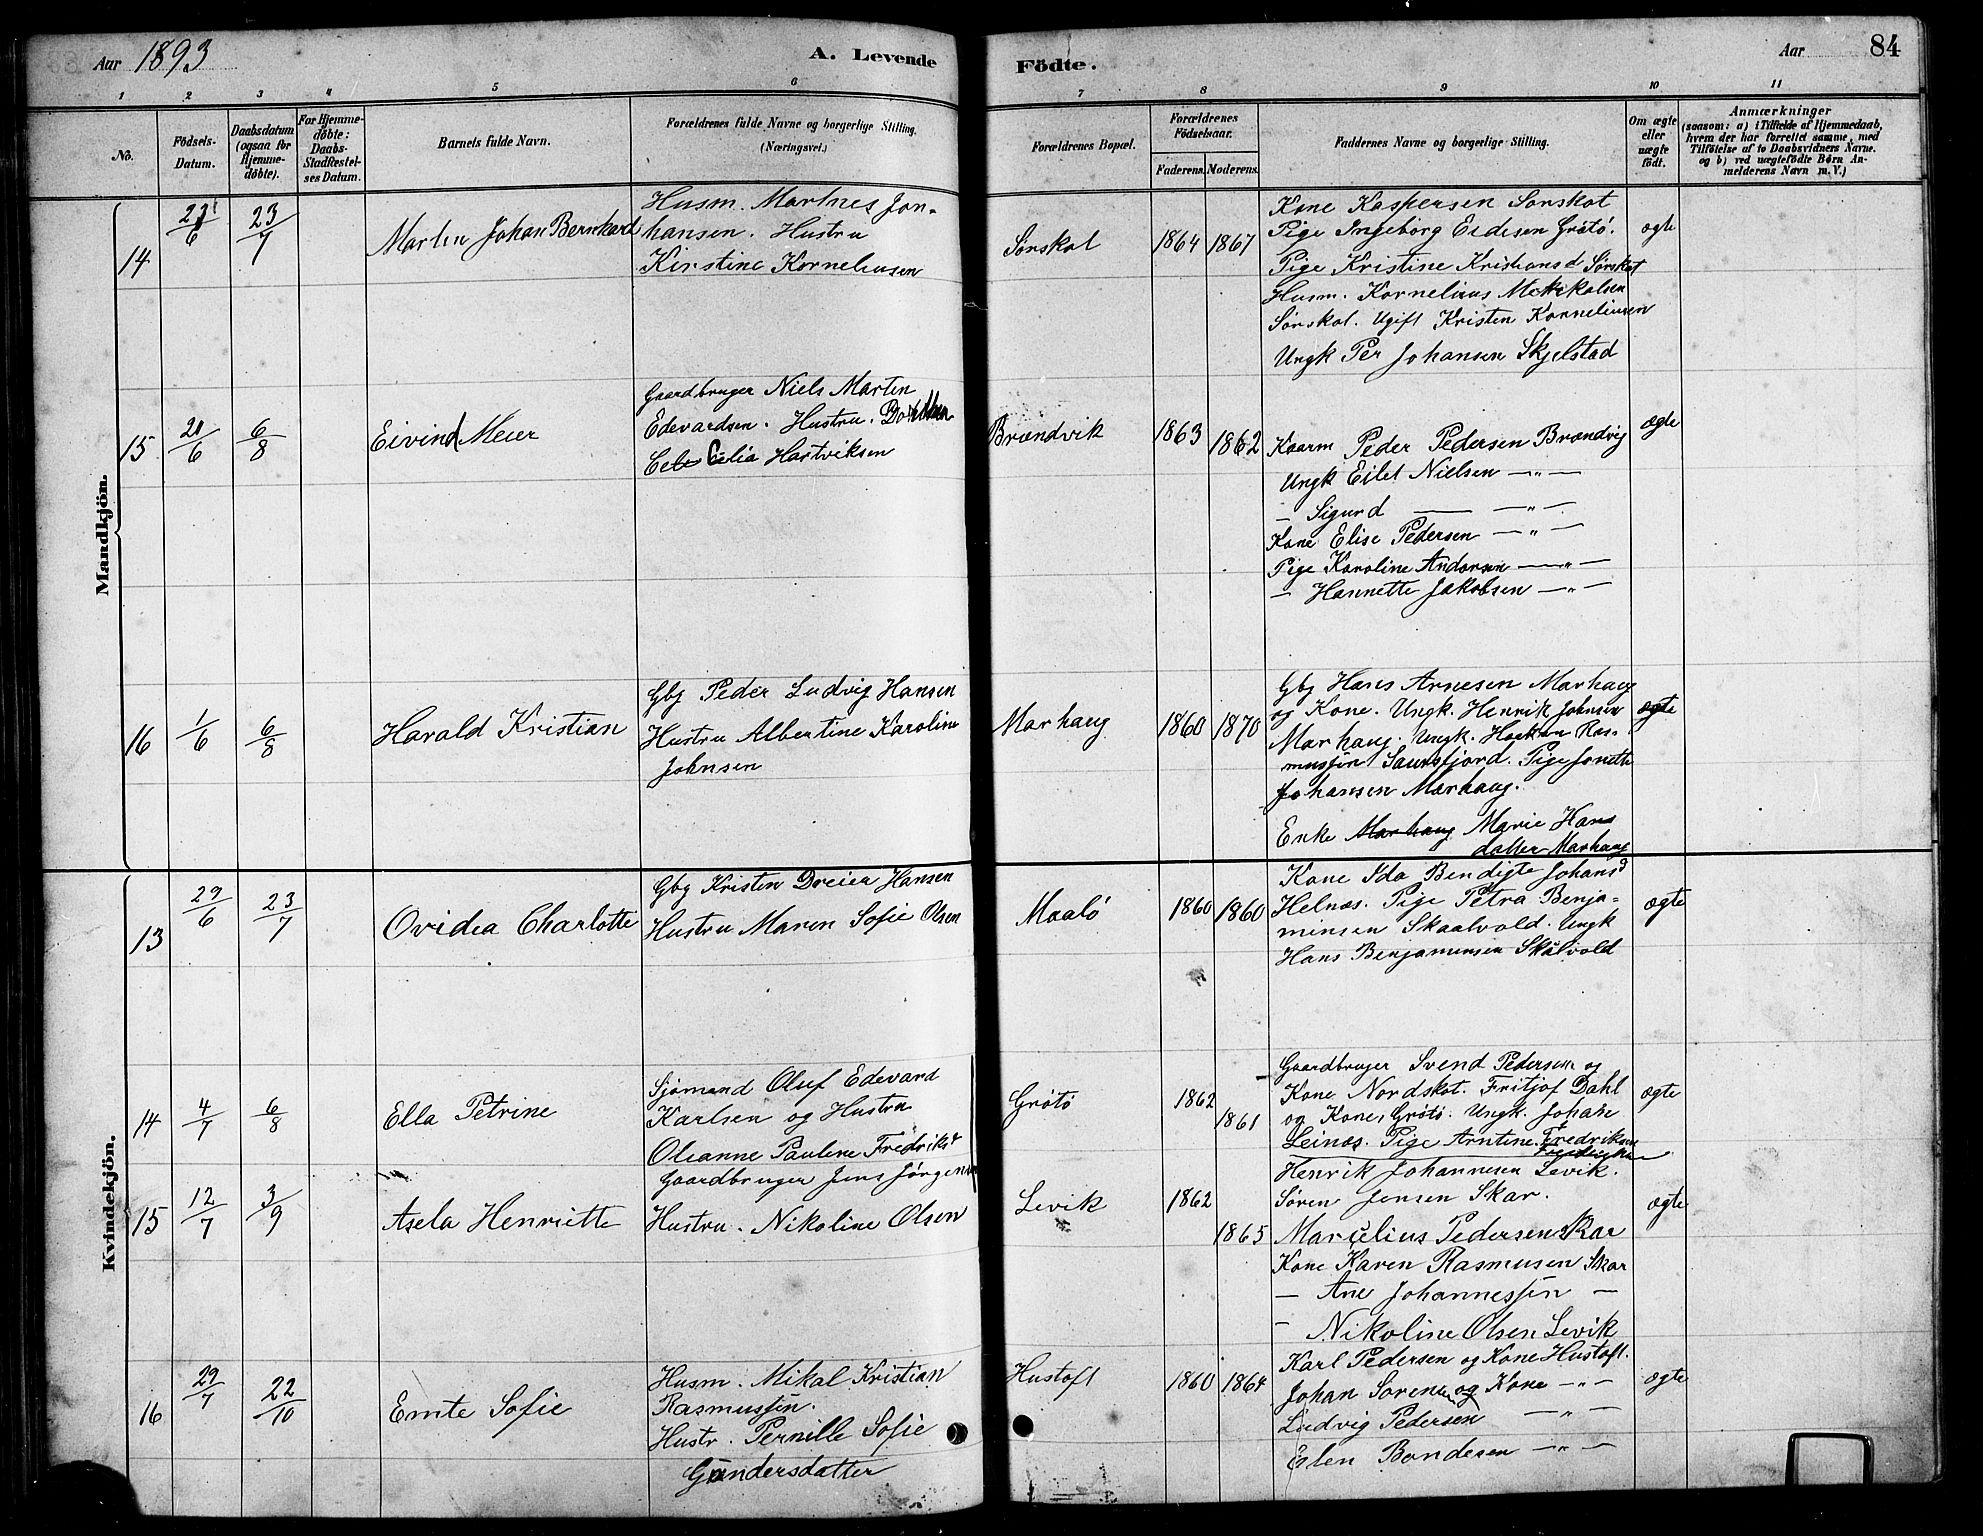 Aar 1893
A. Levende Födte.
Aar 84
1 2 3 4 5 6 7 8 9 10 11
No.
Födsels-Datum.
Daabsdatum (ogsaa for Hjemmedøbte).
For Hjemmedøbte: Daabs-Stadfestelses Datum.
Barnets fulde Navn.
Forældrenes fulde Navne og borgerlige Stilling.
(Næringsvei.)
Forældrenes Bopæl.
Forældrenes Födselsaar.
Faderens. Moderens.
Faddernes Navne og borgerlige Stilling.
Om ægte eller uægte födt.
Anmærkninger
(saasom: a) i Tilfælde af Hjemmedaab,
hvem der har forrettet samme, med
Tilföielse af to Daabsvidners Navne.
og b) ved uægtefödte Börn An-
melderens Navn m. V.)
Mandkjön.
14
6
23/7
Martin Johan Bernhard
Husm. Martnes Jon-
hansen. Hustru
Kirstine Korneliusen
Sørskot
1864 1867
Kone Kaspersen Sørskot
Pige Ingeborg Eidesen Grøtø.
Pige Kristine Kristiansd Sørskot
Husm. Kornelius Mikkalsen
Sørskot. Ugift Kristen Korneliusen
Ungk Per Johansen Skjelstad
ægte
15
20/6
6/8
Eivind Meier
Gaardbruger Niels Marten
Edevardsen. Hustru.
Celia Hartviksen
Brændvik
1863 1862
Kaarm Peder Pedersen Brændvig
Ungk Eilet Nielsen — „ —
— Sigurd — — „ —
Kone Elise Pedersen — „ —
Pige Karoline Andersen — „ —
— Hannette Jakobsen — „ —
ægte
16
1/6
6/8
Harald Kristian
Gbg Peder Ludvig Hansen
Hustru Albertine Karoline
Johnsen
Marhaug
1860 1870
Gbg Hans Arnesen Marhaug
og Kone. Ungk. Henrik Johnsen
Marhaug. Ungk. Haakon Ras-
mussen Saursfjord. Pige Jonette
Johansen Marhaug.
Enke Marhaug Marie Hans
datter Marhaug
ægte
Kvindekjön.
13
29/6
23/7
Ovidea Charlotte
Gbg Kristen Dreier Hansen
Hustru Maren Sofie Olsen
Maalø
1860 1860
Kone Ida Bendigte Johansd
Helnæs. Pige Petra Benja-
minsen Skaalvold. Ungk
Hans Benjaminsen Skålvold
ægte
14
4/7
6/8
Ella Petrine
Sjømand Oluf Edevard
Karlsen og Hustru
Olianne Pauline Fredriksd
Grøtø
1862
1861
Gaardbruger Svend Pedersen og
Kone Nordskot. Fritjof Dahl
og Kone, Grøtø. Ungk. Johan
Leinæs. Pige Arntine Fredriksen
ægte
15
12/7
3/9
Asela Henriette
Gaardbruger Jens Jørgensen
Hustru. Nikoline Olsen
Levik
1862
1865
Henrik Johannesen Levik.
Søren Jensen Skar.
Marcelius Pedersen Skar
Kone Karen Rasmusen Skar
— Ane Johannessen —
— Nikoline Olsen Levik
ægte
16
29/7
22/10
Emte Sofie
Husm. Mikal Kristian
Rasmussen.
Hustr. Pernille Sofie
Gundersdatter
Hustoft
1860 1864
Karl Pedersen og Kone Hustoft.
Johan Sorensen og Kone — „ —
Ludvig Pedersen — „ —
Elen Bondesen — „ —
ægte